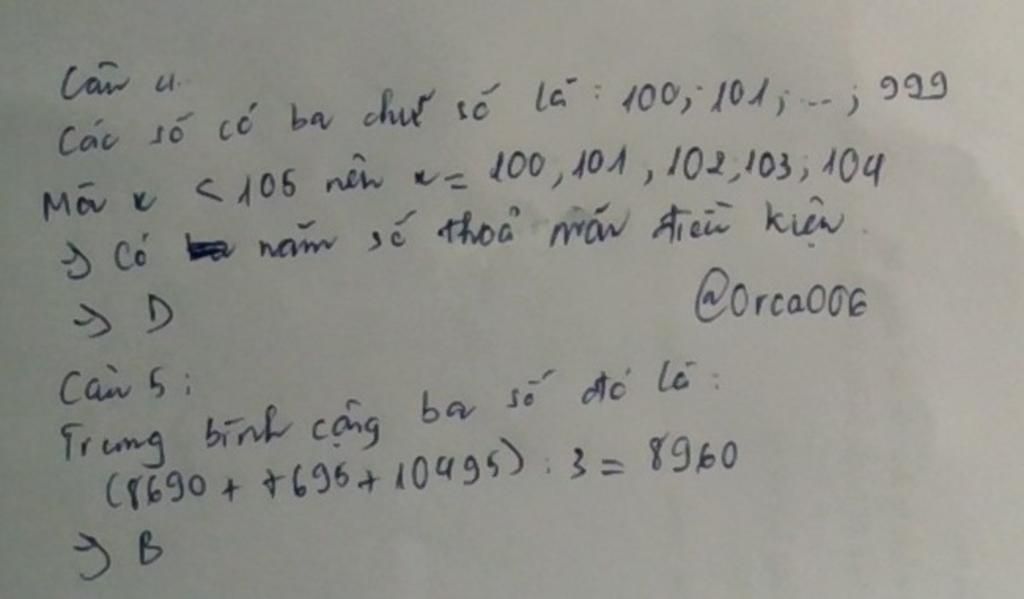 Câu 4.
Các số có ba chữ số là : 100; 101; ...; 999
Mà x < 105 nên x = 100, 101, 102, 103, 104
=> Có năm số thoả mãn điều kiện.
=> D
@Orca006
Câu 5:
Trung bình cộng ba số đó là :
(8690 + 7695 + 10495) : 3 = 8960
=> B